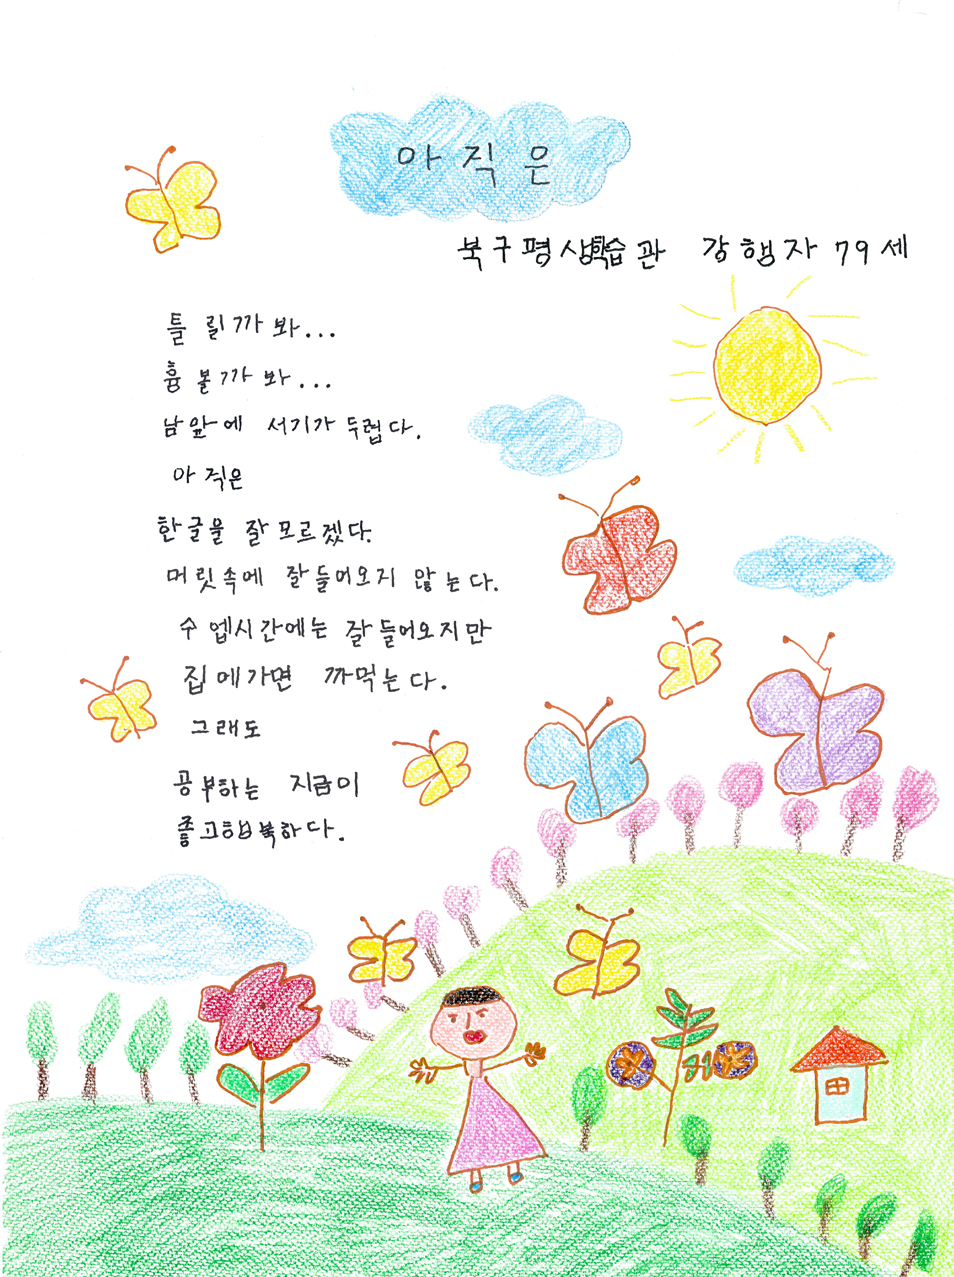 아직은
북구평생학습관 강행자 79세
틀릴까봐...
흉볼까봐...
남앞에 서기가 두렵다.
아직은
한글을 잘 모르겠다.
머릿속에 잘들어오지 않는다.
수업시간에는 잘들어오지만
집에가면 까먹는다.
그래도
공부하는 지금이
좋고행복하다.